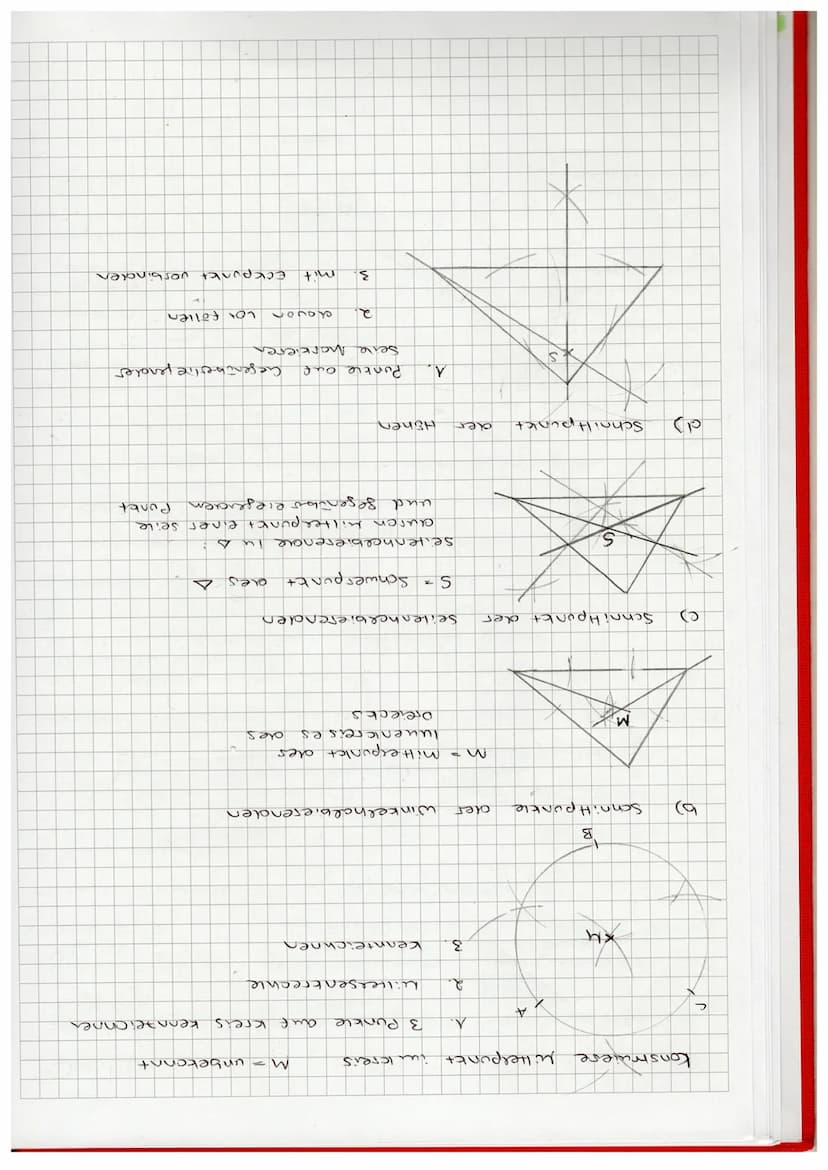 Konstruiere Mittelpunkt im Kreis M = unbekannt
1. 3 Punkte auf Kreis kennzeichnen
A
C
2. Mittelsenkrechte
3. kennzeichnen
M
B
b) Schnittpunkte der Winkelhalbierenden
M = Mittelpunkt des
Innenkreises des
Dreiecks
M
c) Schnittpunkt der Seitenhalbierenden
S = Schwerpunkt des Δ
Seitenhalbierende in Δ:
durch Mittelpunkt einer Seite
und gegenüberliegenden Punkt
S
d) Schnittpunkt der Höhen
1. Punkte auf Gegenüberliegender
Seite Markieren
2. davon Lot fällen
3. mit Eckpunkt verbinden
S